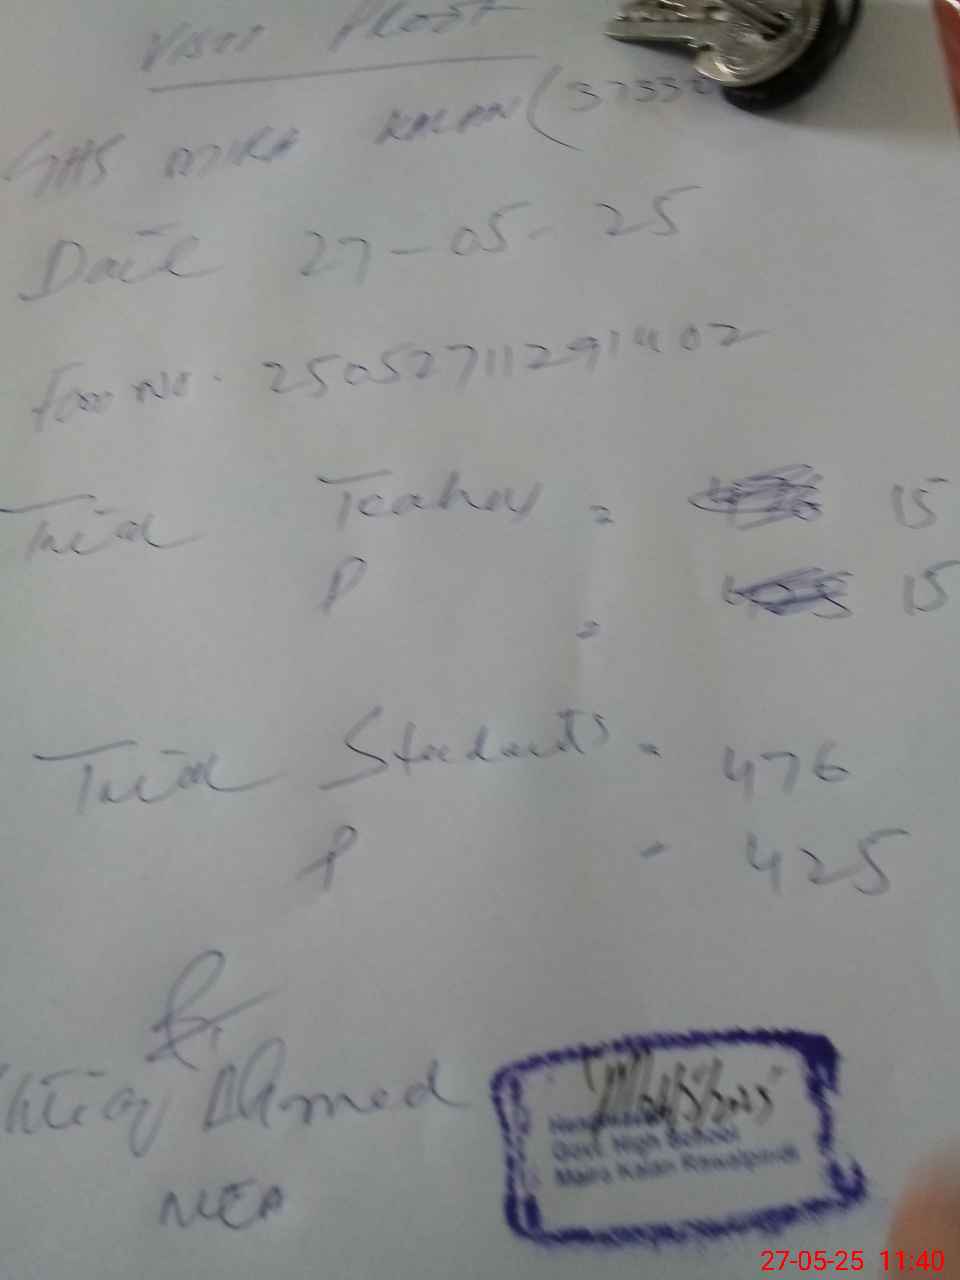 Visit Proof
GHS MIRA KALAN (37330
Date 27-05-25
Form No. 250527111291402
Total Teachers = 15
P = 15
Total Students = 476
P = 425
Ahmed
MEA
Govt. High School
Maira Kalan Rawalpindi
27-05-25 11:40